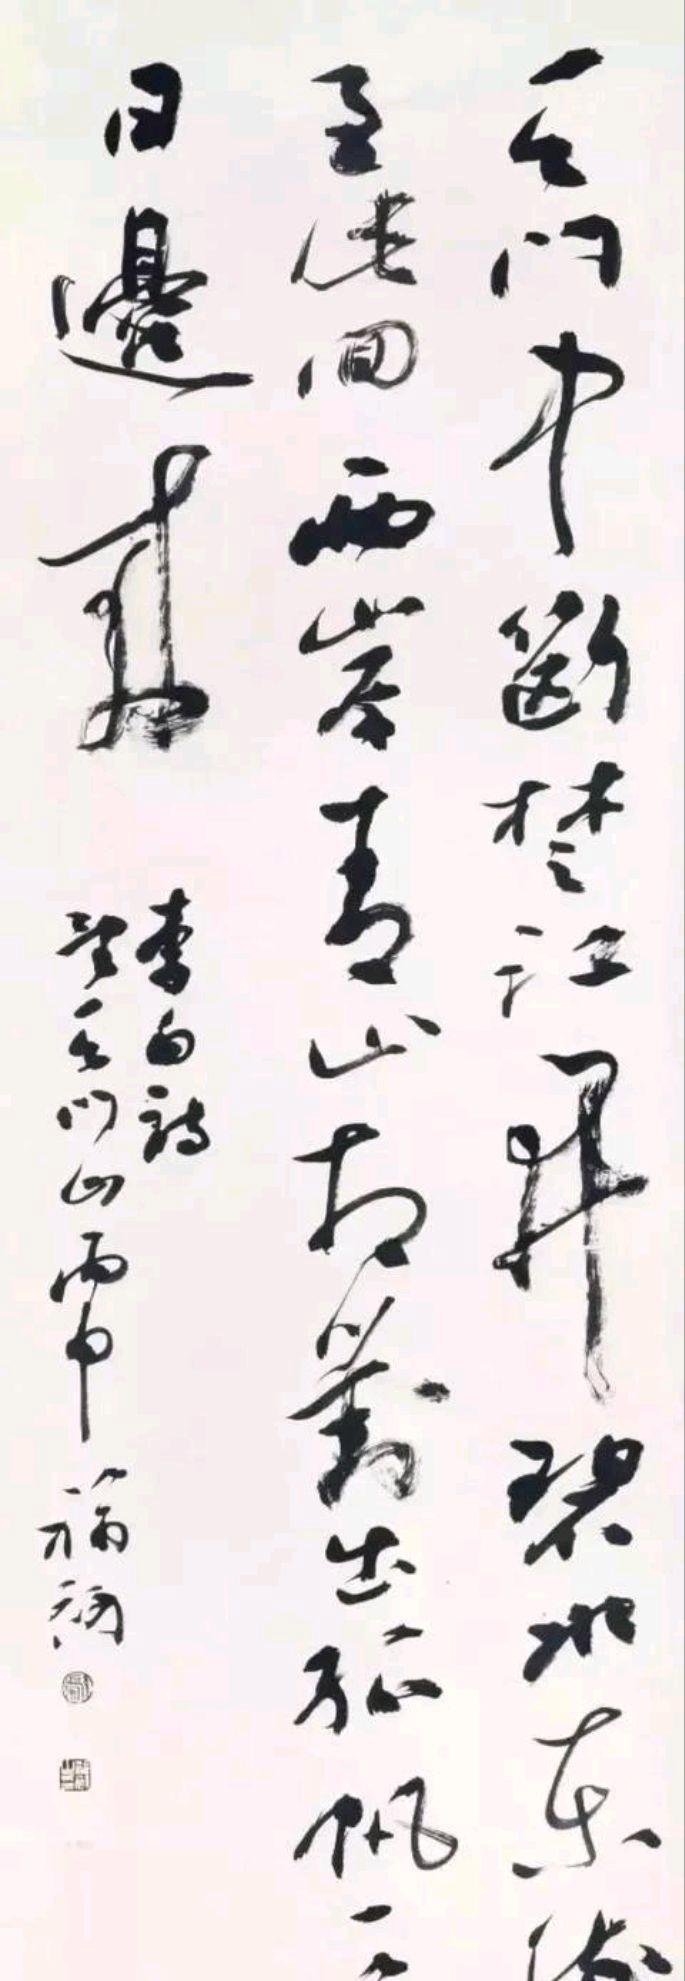 天門中斷楚江開碧水東流
至此回兩岸青山相對出孤帆一
日邊來
李白詩
望天門山丙申